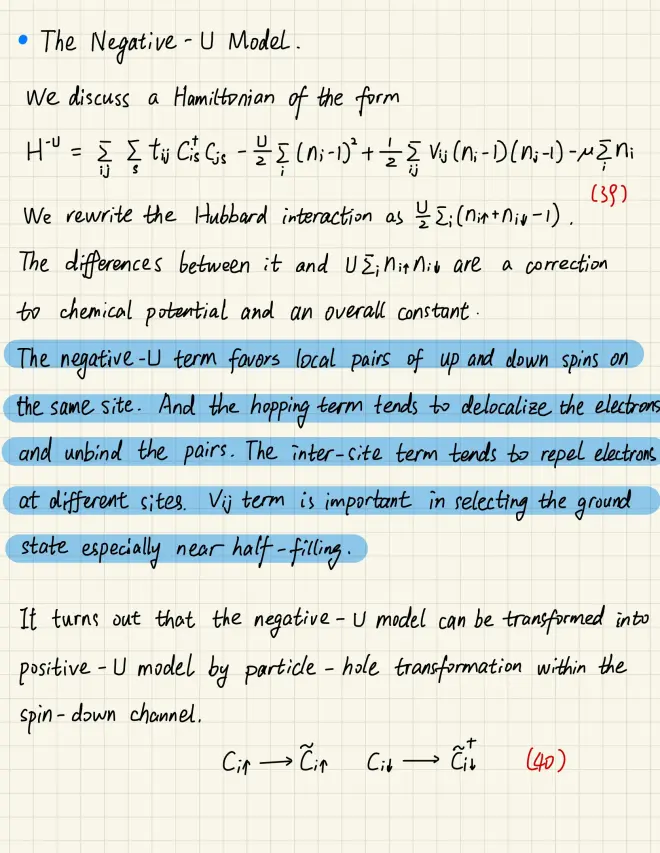 • The Negative-U Model.
We discuss a Hamiltonian of the form
H^{-U} = Σ_{ij} Σ_s t_{ij} C_{is}^† C_{js} - U/2 Σ_i (n_i-1)² + 1/2 Σ_{ij} V_{ij} (n_i-1)(n_j-1) - μ Σ_i n_i
(39)
We rewrite the Hubbard interaction as U/2 Σ_i (n_{i↑}+n_{i↓}-1).
The differences between it and U Σ_i n_{i↑} n_{i↓} are a correction
to chemical potential and an overall constant.
The negative-U term favors local pairs of up and down spins on
the same site. And the hopping term tends to delocalize the electrons
and unbind the pairs. The inter-site term tends to repel electrons
at different sites. V_{ij} term is important in selecting the ground
state especially near half-filling.
It turns out that the negative-U model can be transformed into
positive-U model by particle-hole transformation within the
spin-down channel.
C_{i↑} → C̃_{i↑} C_{i↓} → C̃_{i↓}^† (40)